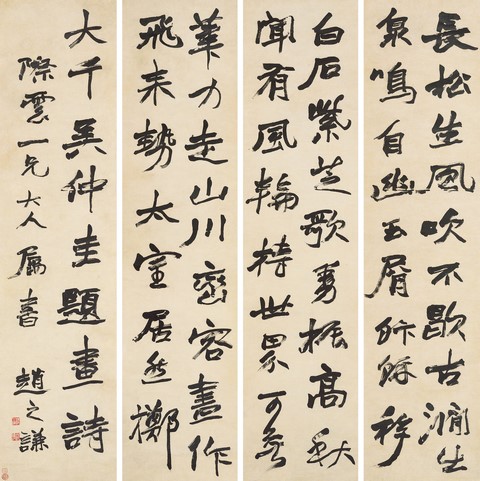 長松生風吹不歇古澗出
泉鳴自幽玉屑
白石紫芝歌振高秋
聞有風輪持世界可無
筆力走山川巒容盡作
飛來勢太室居然擲
大千吳仲圭題畫詩
際雲一兄大人屬書 趙之謙